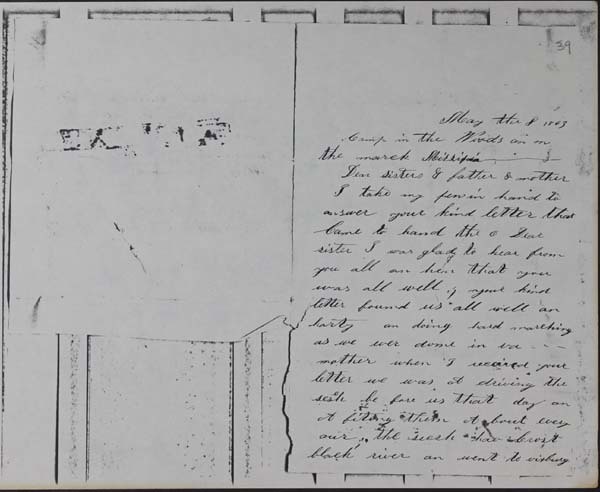 39
May the 8 1863
Camp in the Woods on m
the march Missippi
Dear sisters & father & mother
I take my pen in hand to
answer your kind letter that
Came to hand the 6 Dear
sister I was glad to hear from
you all an hear that you
was all well your kind
letter found us all well an
harty an doing hard marching
as we ever done in va
mother when I received your
letter we was at driving the
sesh be fore us that day an
at fiting them at bout evry
our the sesh has Crost
black river an went to vixburg